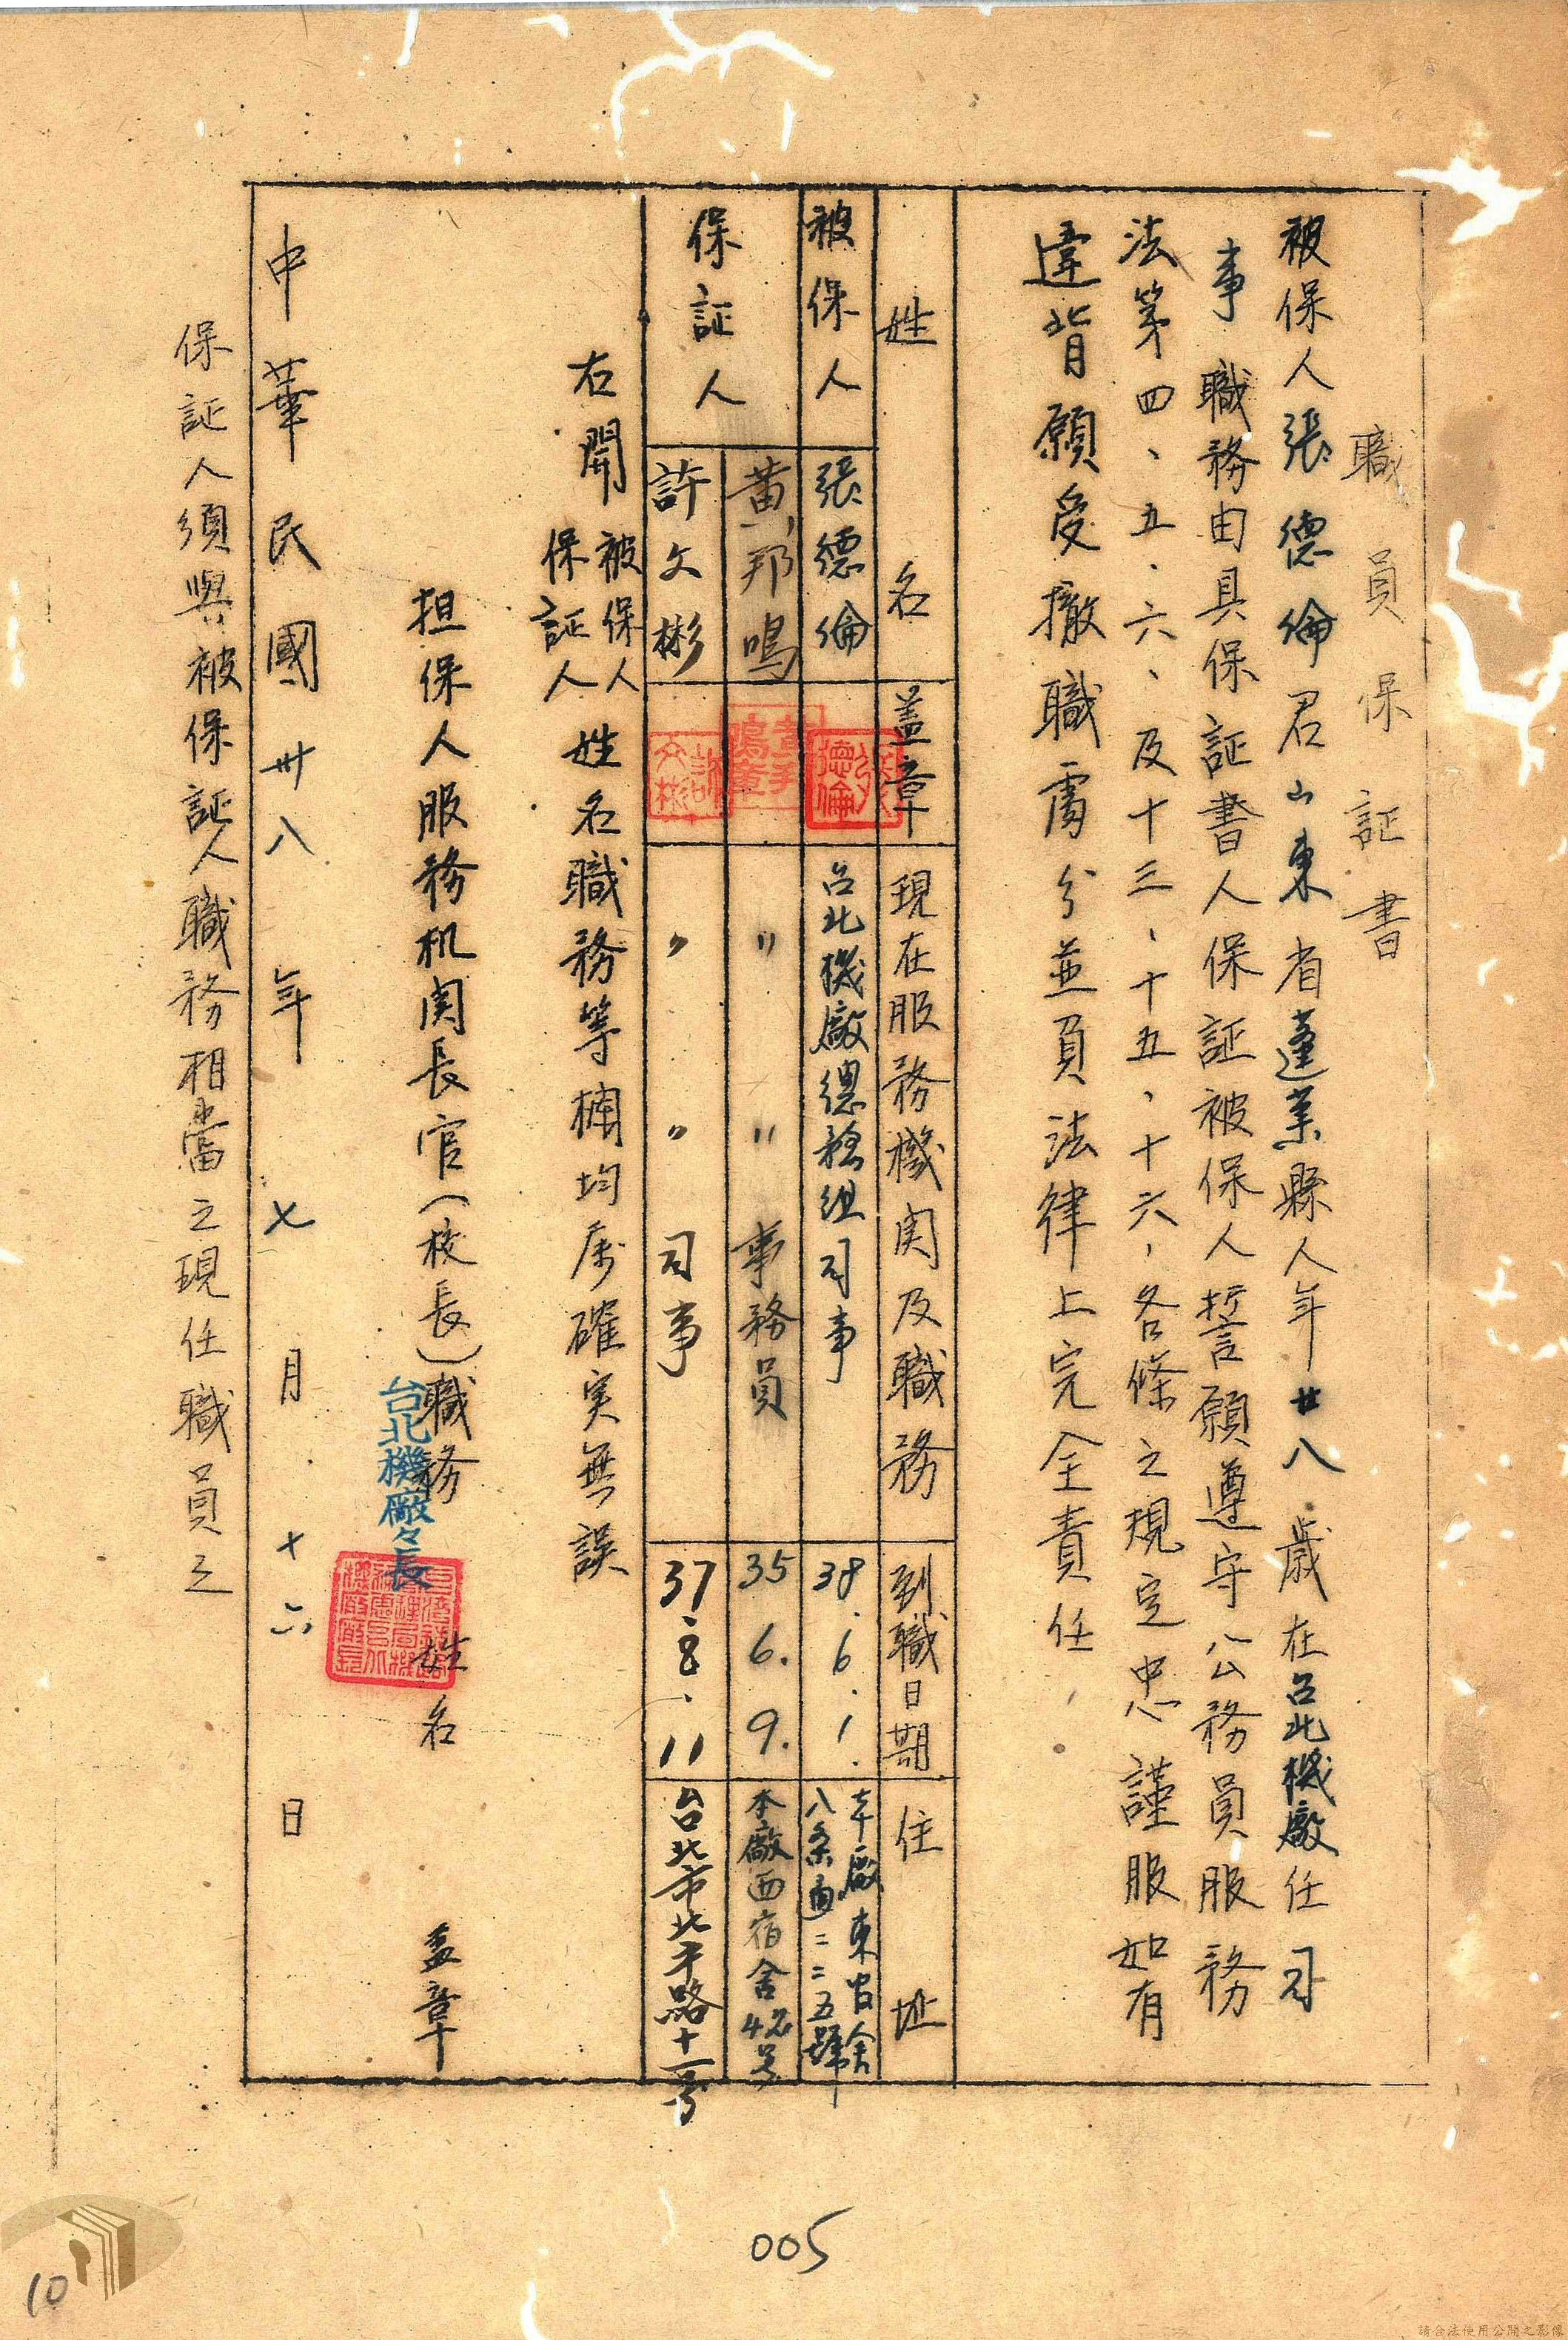 職員保証書
被保人張德倫君山東省蓬萊縣人年廿八歲在台北機廠任司
事職務由具保証書人保証被保人誓願遵守公務員服務
法第四、五、六、及十三、十五、十六、各條之規定忠謹服如有
違背願受撤職處分並負法律上完全責任
姓名 蓋章 現在服務機関及職務 到職日期 住址
被保人 張德倫 台北機廠總務組司事 38.6.1. 本廠東宿舍
八条通二二五號
保証人 黃邦鳴 〃 〃 事務員 35 6. 9. 本廠西宿舍
許文彬 〃 〃 司事 37.8.11 台北市北平路十一号
張德倫
許文彬
右開被保人
保証人姓名職務等欄均屬確実無誤
担保人服務机関長官(校長)職務 姓名 盖章
台北機廠々長
中華民國卅八年七月十六日
保証人須與被保証人職務相當之現任職員之
005
10
請合法使用公開之影像